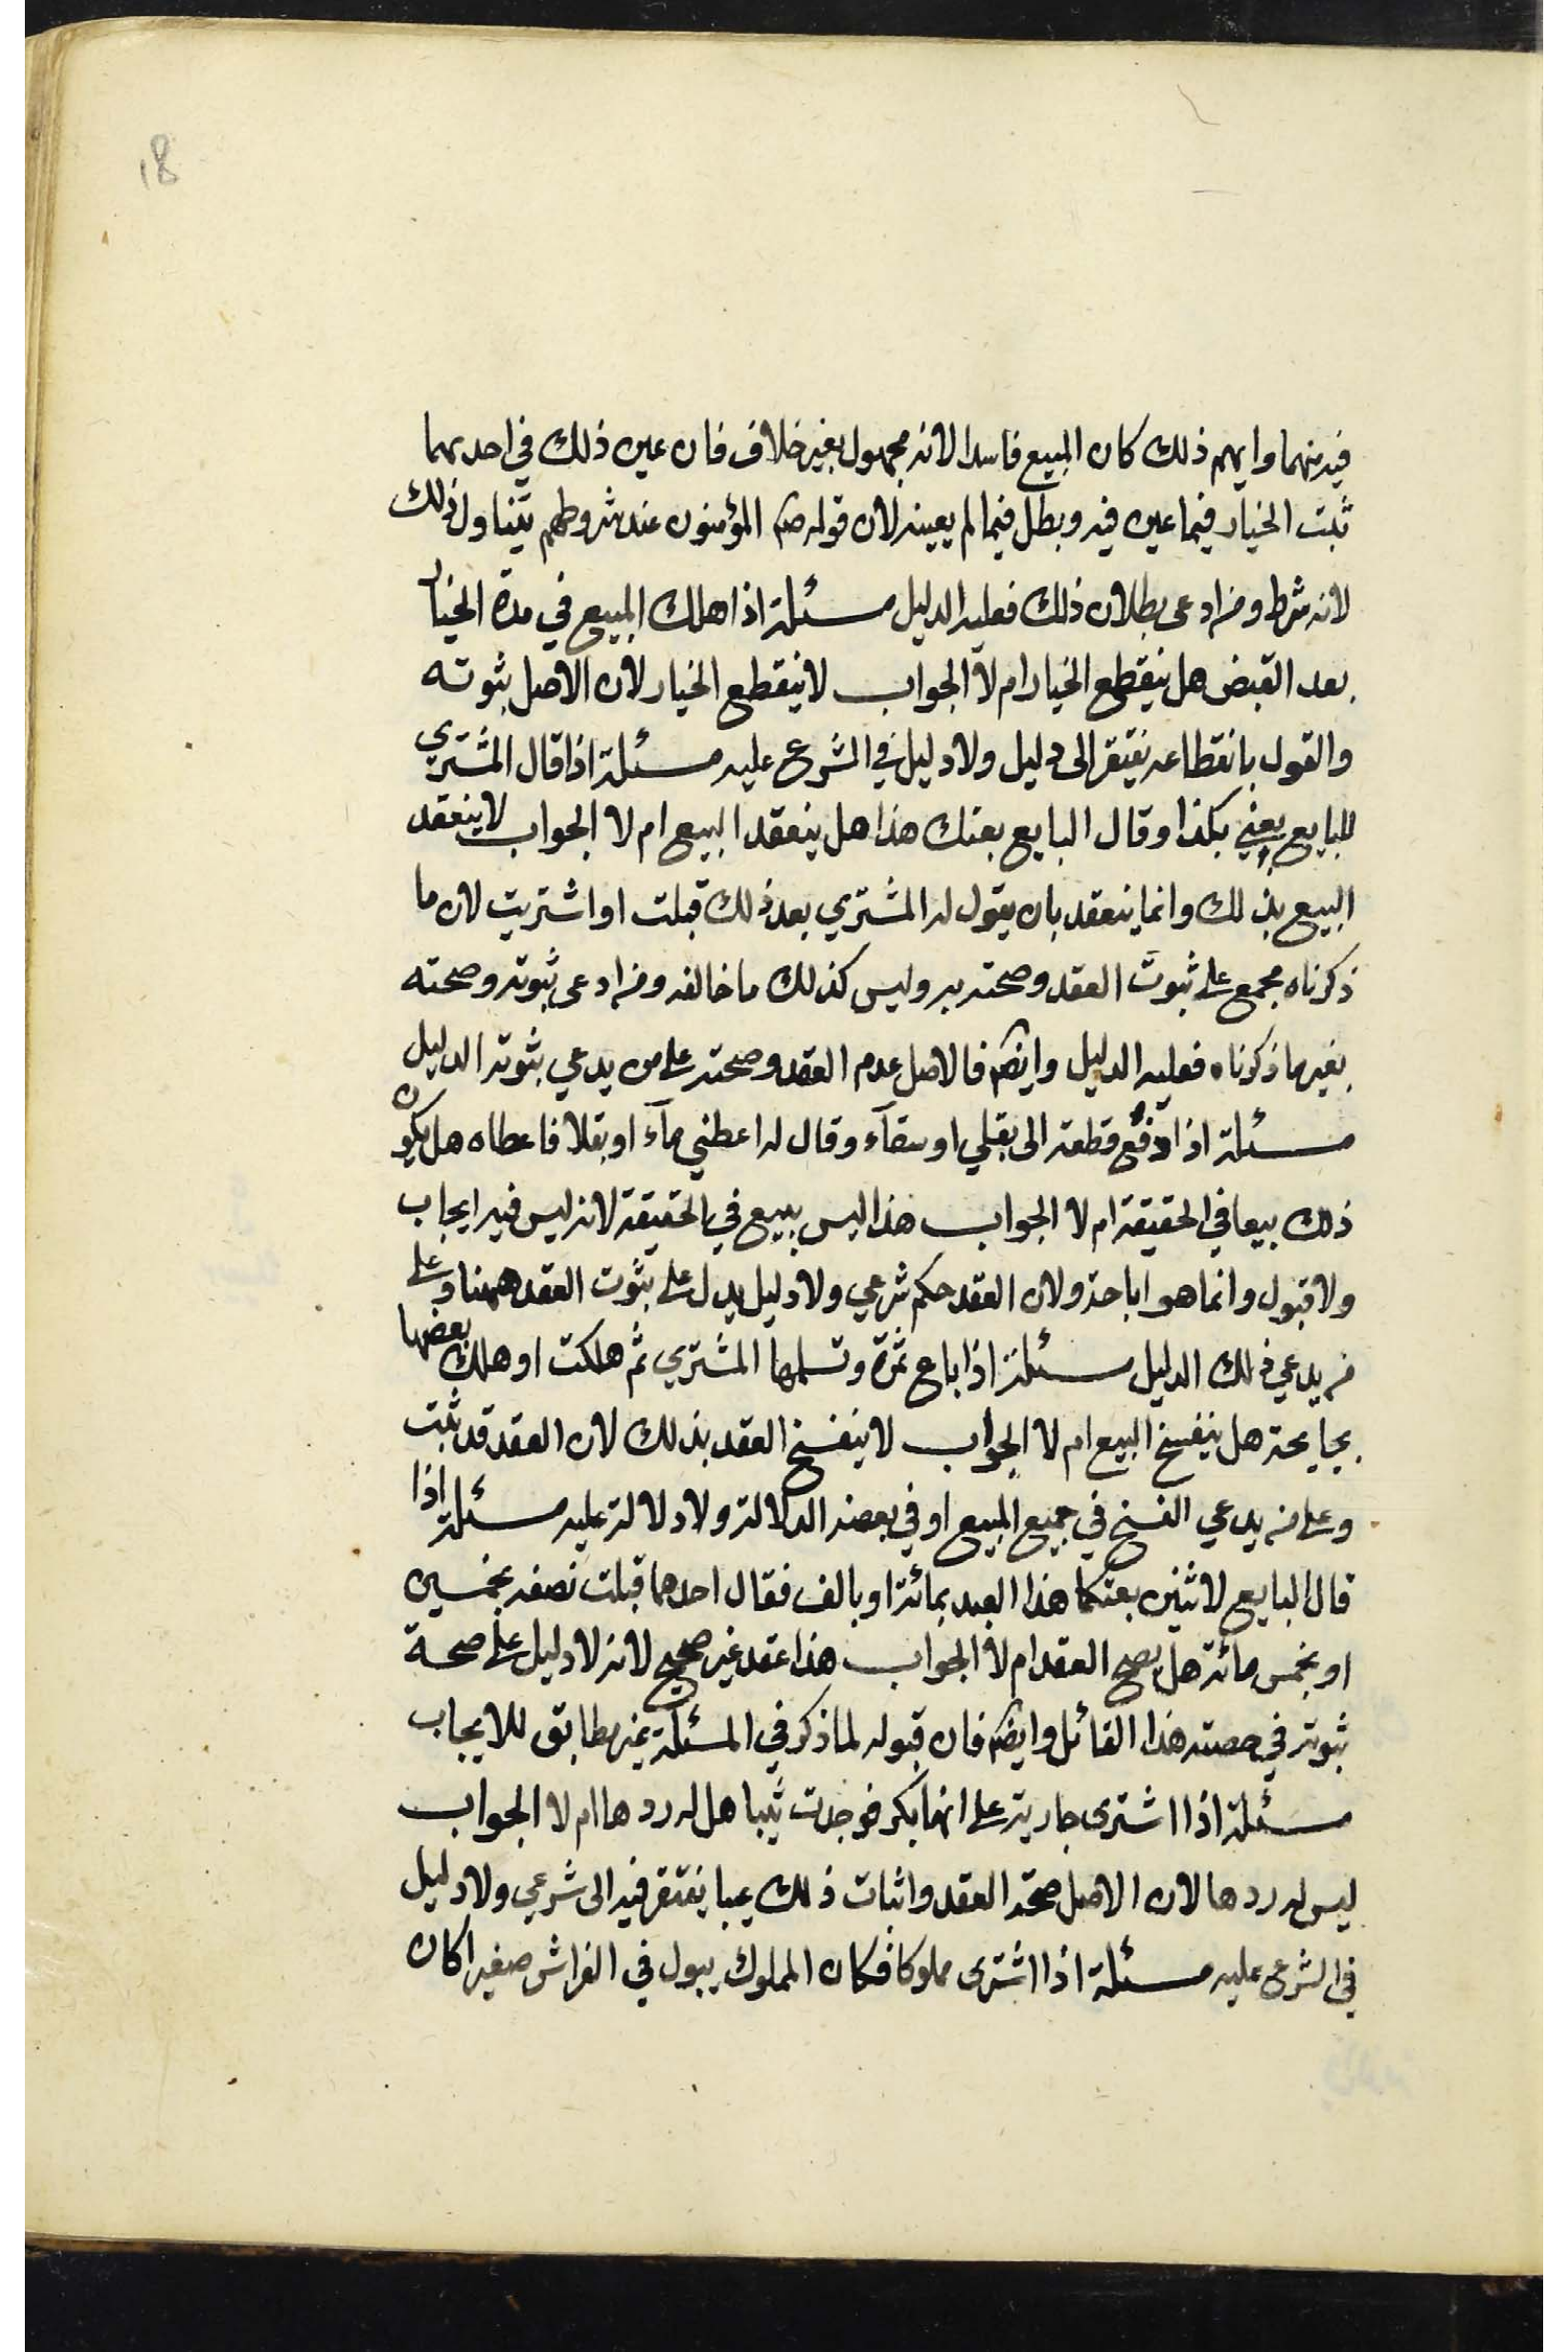 18
فيه منهما وابهم ذلك كان المبيع فاسدا لانه مجهول بغير خلاف فان عين ذلك في احديهما
ثبت الخيار فيما عين فيه وبطل فيما لم يعينه لان قوله صم المؤمنون عند شروطهم يتناول ذلك
لانه شرط ومن ادعى بطلان ذلك فعليه الدليل مسئلة اذا هلك المبيع في مدة الخيار
بعد القبض هل ينقطع الخيار ام لا الجواب لا ينقطع الخيار لان الاصل ثبوته
والقول بانقطاعه يفتقر الى دليل ولا دليل في الشرع عليه مسئلة اذا قال المشتري
للبايع بعني بكذا وقال البايع بعتك هذا هل ينعقد البيع ام لا الجواب لا ينعقد
البيع بذلك وانما ينعقد بان يقول له المشتري بعد ذلك قبلت او اشتريت لان ما
ذكرناه مجمع على ثبوت العقد وصحته به وليس كذلك ما خالفه ومن ادعى ثبوته وصحته
بغير ما ذكرناه فعليه الدليل وايضم فالاصل عدم العقد وصحته على من يدعي ثبوته الدليل
مسئلة اذا دفع قطعة الى بقلي او سقآء وقال له اعطني مآء او بقلا فاعطاه هل يكون
ذلك بيعا في الحقيقة ام لا الجواب هذا ليس ببيع في الحقيقة لانه ليس فيه ايجاب
ولا قبول وانما هو اباحة ولان العقد حكم شرعي ولا دليل يدل على ثبوت العقد ههنا وعلى
من يدعي ذلك الدليل مسئلة اذا باع ثمرة وتسلمها المشتري ثم هلكت او هلك بعضها
بجايحة هل ينفسخ البيع ام لا الجواب لا ينفسخ العقد بذلك لان العقد قد ثبت
وعلى من يدعي الفسخ في جميع المبيع او في بعضه الدلالة ولا دلالة عليه مسئلة اذا
قال البايع لاثنين بعتكما هذا العبد بمائة او بالف فقال احدهما قبلت نصفه بخمسين
او بخمس مائة هل يصح العقد ام لا الجواب هذا عقد غير صحيح لانه لا دليل على صحة
ثبوته في حصته هذا القائل وايضم فان قبوله لما ذكر في المسئلة غير مطابق للايجاب
مسئلة اذا اشترى جارية على انها بكر فوجدت ثيبا هل له ردها ام لا الجواب
ليس له ردها لان الاصل صحة العقد واثبات ذلك عيبا يفتقر فيه الى شرعي ولا دليل
في الشرع عليه مسئلة اذا اشترى مملوكا فكان المملوك يبول في الفراش صغيرا كان